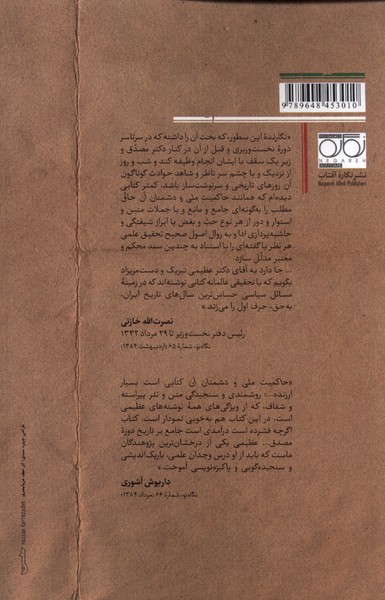 9 789648 453010
نگاره
NEGAREH
AFTAB
نشر نگارهٔ آفتاب
Negareh Aftab Publishers
«نگارندهٔ این سطور، که بخت آن را داشته که در سرتاسر
دورهٔ نخست‌وزیری و قبل از آن در کنار دکتر مصدّق و
زیر یک سقف با ایشان انجام وظیفه کند و شب و روز
از نزدیک و با چشم سر ناظر و شاهد حوادث گوناگون
آن روزهای تاریخی و سرنوشت‌ساز باشد، کمتر کتابی
دیده‌ام که همانند حاکمیت ملّی و دشمنان آن حقّ
مطلب را به‌گونه‌ای جامع و مانع و با جملات متین و
استوار و دور از هر نوع حبّ و بغض یا ابراز شیفتگی و
حاشیه‌پردازی ادا و به روال اصول صحیح تحقیق علمی
هر نظر یا گفته‌ای را با استناد به چندین سند محکم و
معتبر مدلّل سازد.
... جا دارد به آقای دکتر عظیمی تبریک و دست‌مریزاد
بگویم که با تحقیقی عالمانه کتابی نوشته‌اند که در زمینهٔ
مسائل سیاسی حساس‌ترین سال‌های تاریخ ایران،
به‌حق، حرف اول را می‌زند.»
نصرت‌الله خازنی
رئیس دفتر نخست‌وزیر تا ۲۹ مرداد ۱۳۳۲
نگاه‌نو، شمارهٔ ۶۵ (اردیبهشت ۱۳۸۴)
«حاکمیت ملّی و دشمنان آن کتابی است بسیار
ارزنده...؛ روشمندی و سنجیدگیِ متن و نثر پیراسته
و شفاف، که از ویژگی‌های همهٔ نوشته‌های عظیمی
است، در این کتاب هم به‌خوبی نمودار است.
اگرچه فشرده است درآمدی است جامع بر تاریخ دورهٔ
مصدق... عظیمی یکی از درخشان‌ترین پژوهندگان
ماست که باید از او درس وجدان علمی، باریک‌اندیشی
و سنجیده‌گویی و پاکیزه‌نویسی آموخت.»
داریوش آشوری
نگاه‌نو، شمارهٔ ۶۶ (مرداد ۱۳۸۴)